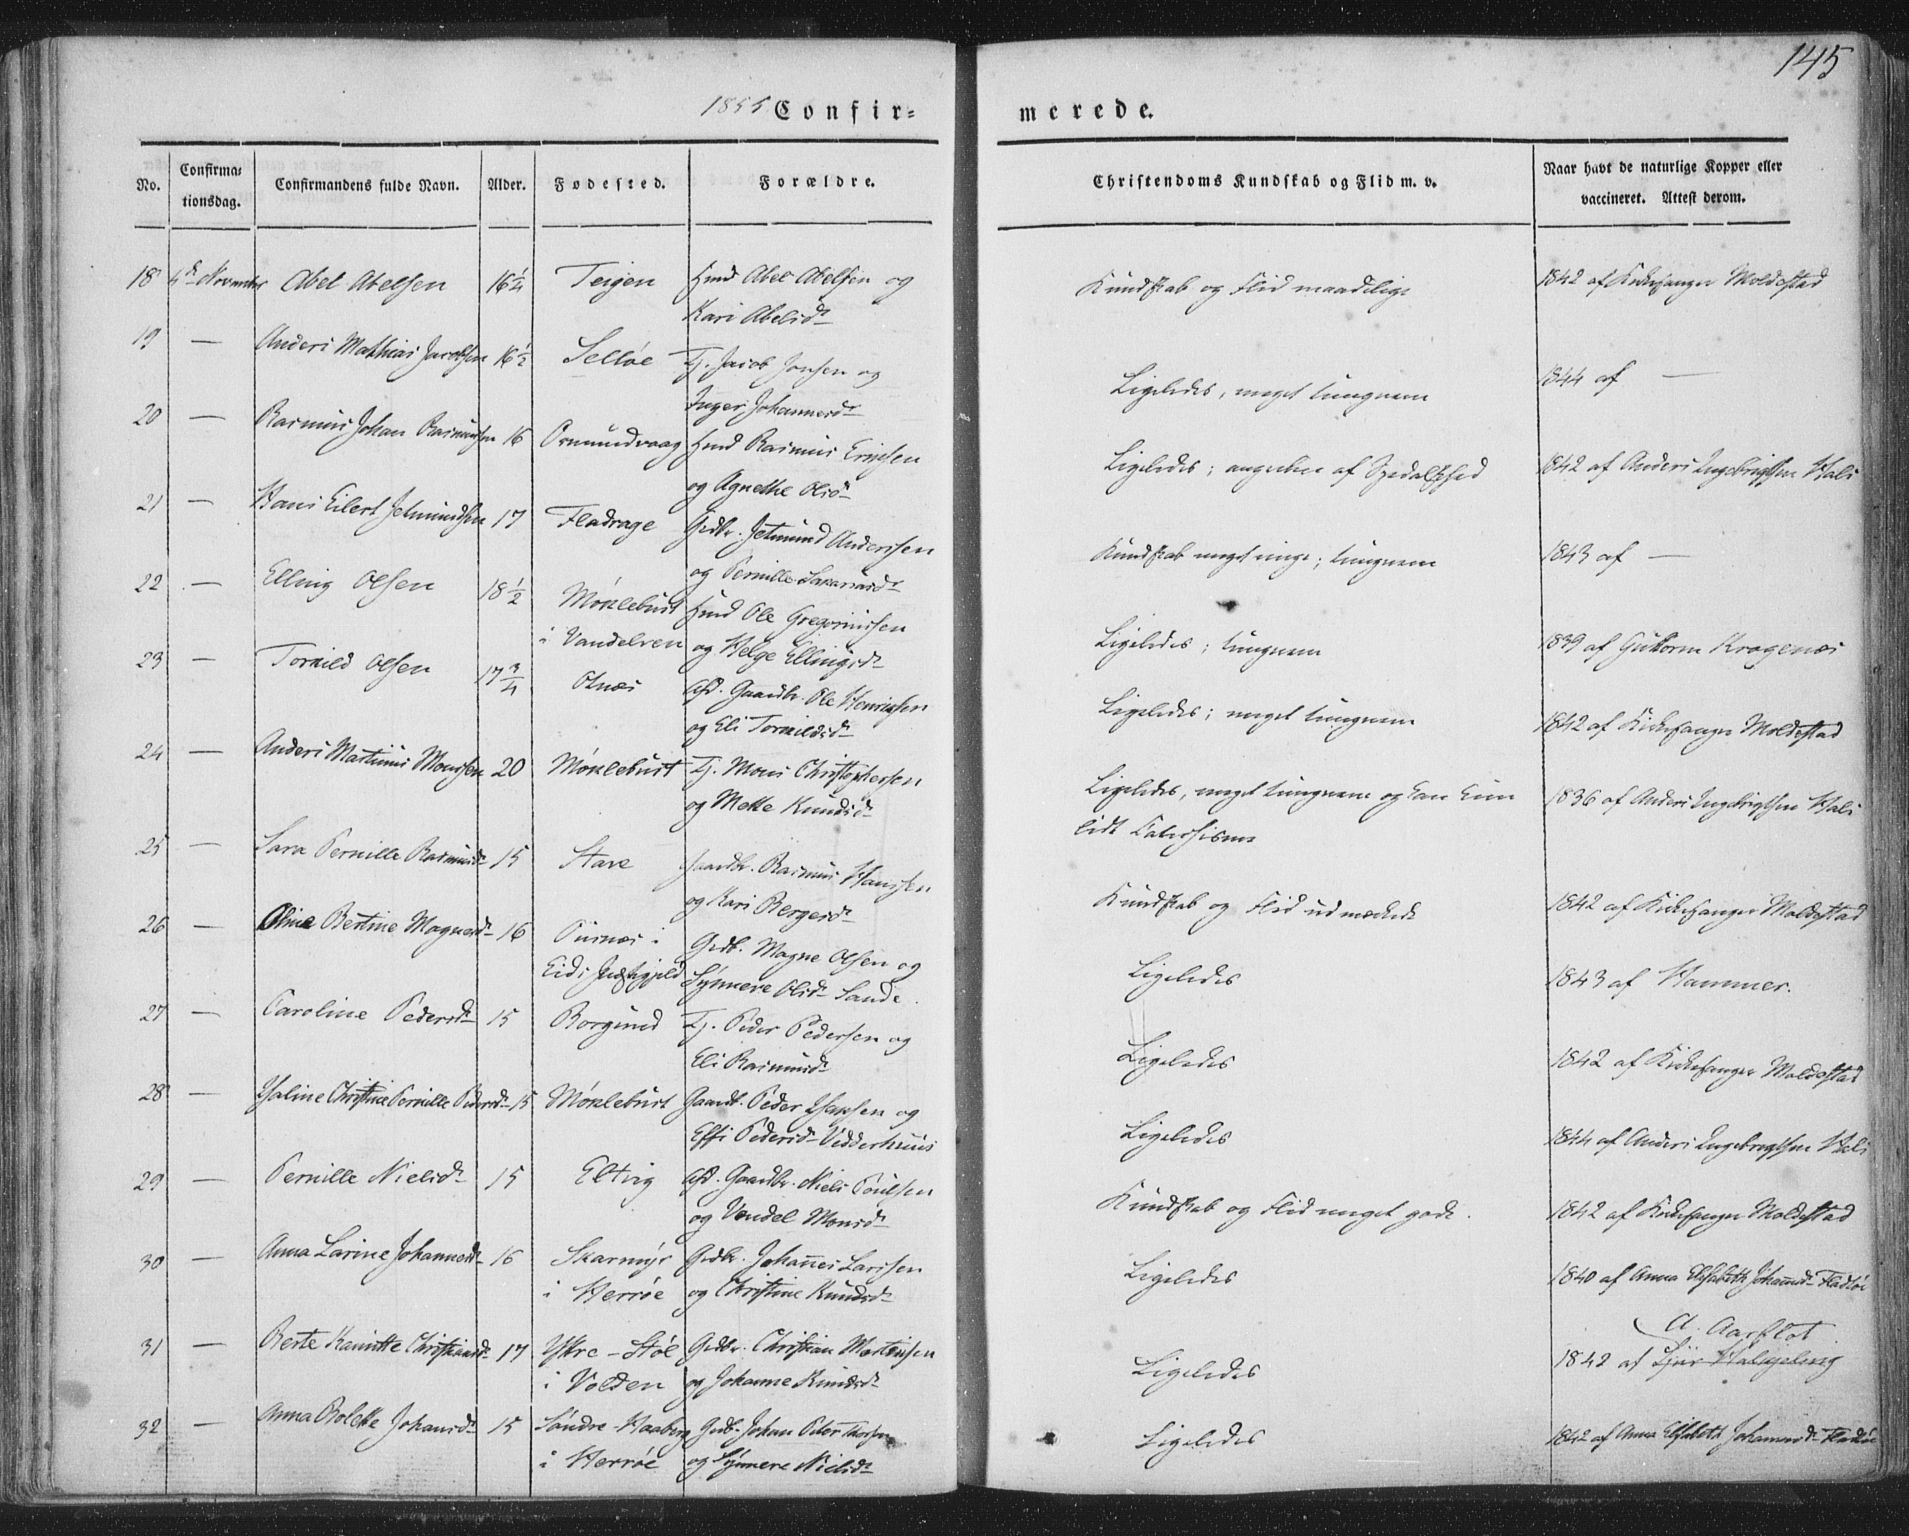 145
1855 Confir=
merede.
No.
Confirma=
tionsdag.
Confirmandens fulde Navn.
Alder.
Fødested.
Forældre.
Christendoms Kundskab og Flid m. v.
Naar havt de naturlige Kopper eller
vaccineret. Attest derom.
18 4de November Abel Abelsen 16 1/4 Teigen Hmd Abel Abelsen og
Kari Abelsd.
Kundskab og Flid maadelige
1842 af Kirkesanger Moldestad
19 — Anders Mathias Jacobsen 16 1/2 Selløe Tj. Jacob Jonsen og
Inger Johannesd.
Ligeledes, meget tungnem
1844 af —
20 — Rasmus Johan Rasmussen 16 Ormundvaag Hmd Rasmus
og Agnethe Olsd.
Ligeledes; angreben af Spedalskhed
1842 af Anders Ingebrigtsen
21 — Hans Eilert Jetmundsen 17 Fladrage Grdbr. Jetmund Anderssen
og Pernille
Kundskab meget ringe; tungnem
1843 af —
22 — Elling Olsen 18 1/2 Møklebust Hmd Ole Gregoriussen
i Vandelven og Helge Ellingsd.
Ligeledes; tungnem
1839 af Guttorm Kragenæs
23 — Torkild Olsen 17 3/4 Otnæs Afd. Gaardbr. Ole Henriksen
og Eli Torkildsd.
Ligeledes; meget tungnem
1842 af Kirkesanger Moldestad
24 — Anders Martinus Monssen 20 Møklebust Tj. Mons Christophersen
og Mette Knudsd.
Ligeledes, meget tungnem og kan kun
lidt Catechisme
1836 af Anders Ingebrigtsen
25 — Sara Pernille Rasmusd. 15 Stave Gaardbr. Rasmus Hanssen
og Kari Bergesd.
Kundskab og Flid udmærkede
1842 af Kirkesanger Moldestad
26 — Oline Bertine Magnesd. 16 i Grdb. Magne Olsen og
Eids Præstegjeld Synnere Olsd. Sande.
Ligeledes
1843 af Hammer.
27 — Caroline Pedersd. 15 Borgund Tj. Peder Pedersen og
Eli Rasmusd.
Ligeledes
1842 af Kirkesanger Moldestad
28 — Christine Pernille Pedersd. 15 Møklebust Gaardb. Peder og
Effi Pedersd. Vedderhuus
Ligeledes
1844 af Anders Ingebrigtsen
29 — Pernille Nielsd. 15 Eltvig Afd. Gaardbr. Niels Poulsen
og Vendel Monsd.
Kundskab og Flid meget gode.
1842 af Kirkesanger Moldestad
30 — Anna Larine Johannesd. 16 Skarmyr Grdbr. Johannes Larssen
i Herrøe og Christine Knudsd.
Ligeledes
1840 af Anna Elisabeth Johannesd. Fladsøe
31 — Berte Kamitte Christiansd. 17 Ytre-Støl Grdbr. Christian Mortensen
i Volden og Johanne Knudsd.
Ligeledes
A. Aarflot
1842 af
32 — Anna Bolette Johansd. 15 Søndre Haaberg Grdb. Johan Peter
i Herrøe og Synnere Nielsd.
Ligeledes
1842 af Anna Elisabeth Johannesd. Fladsøe